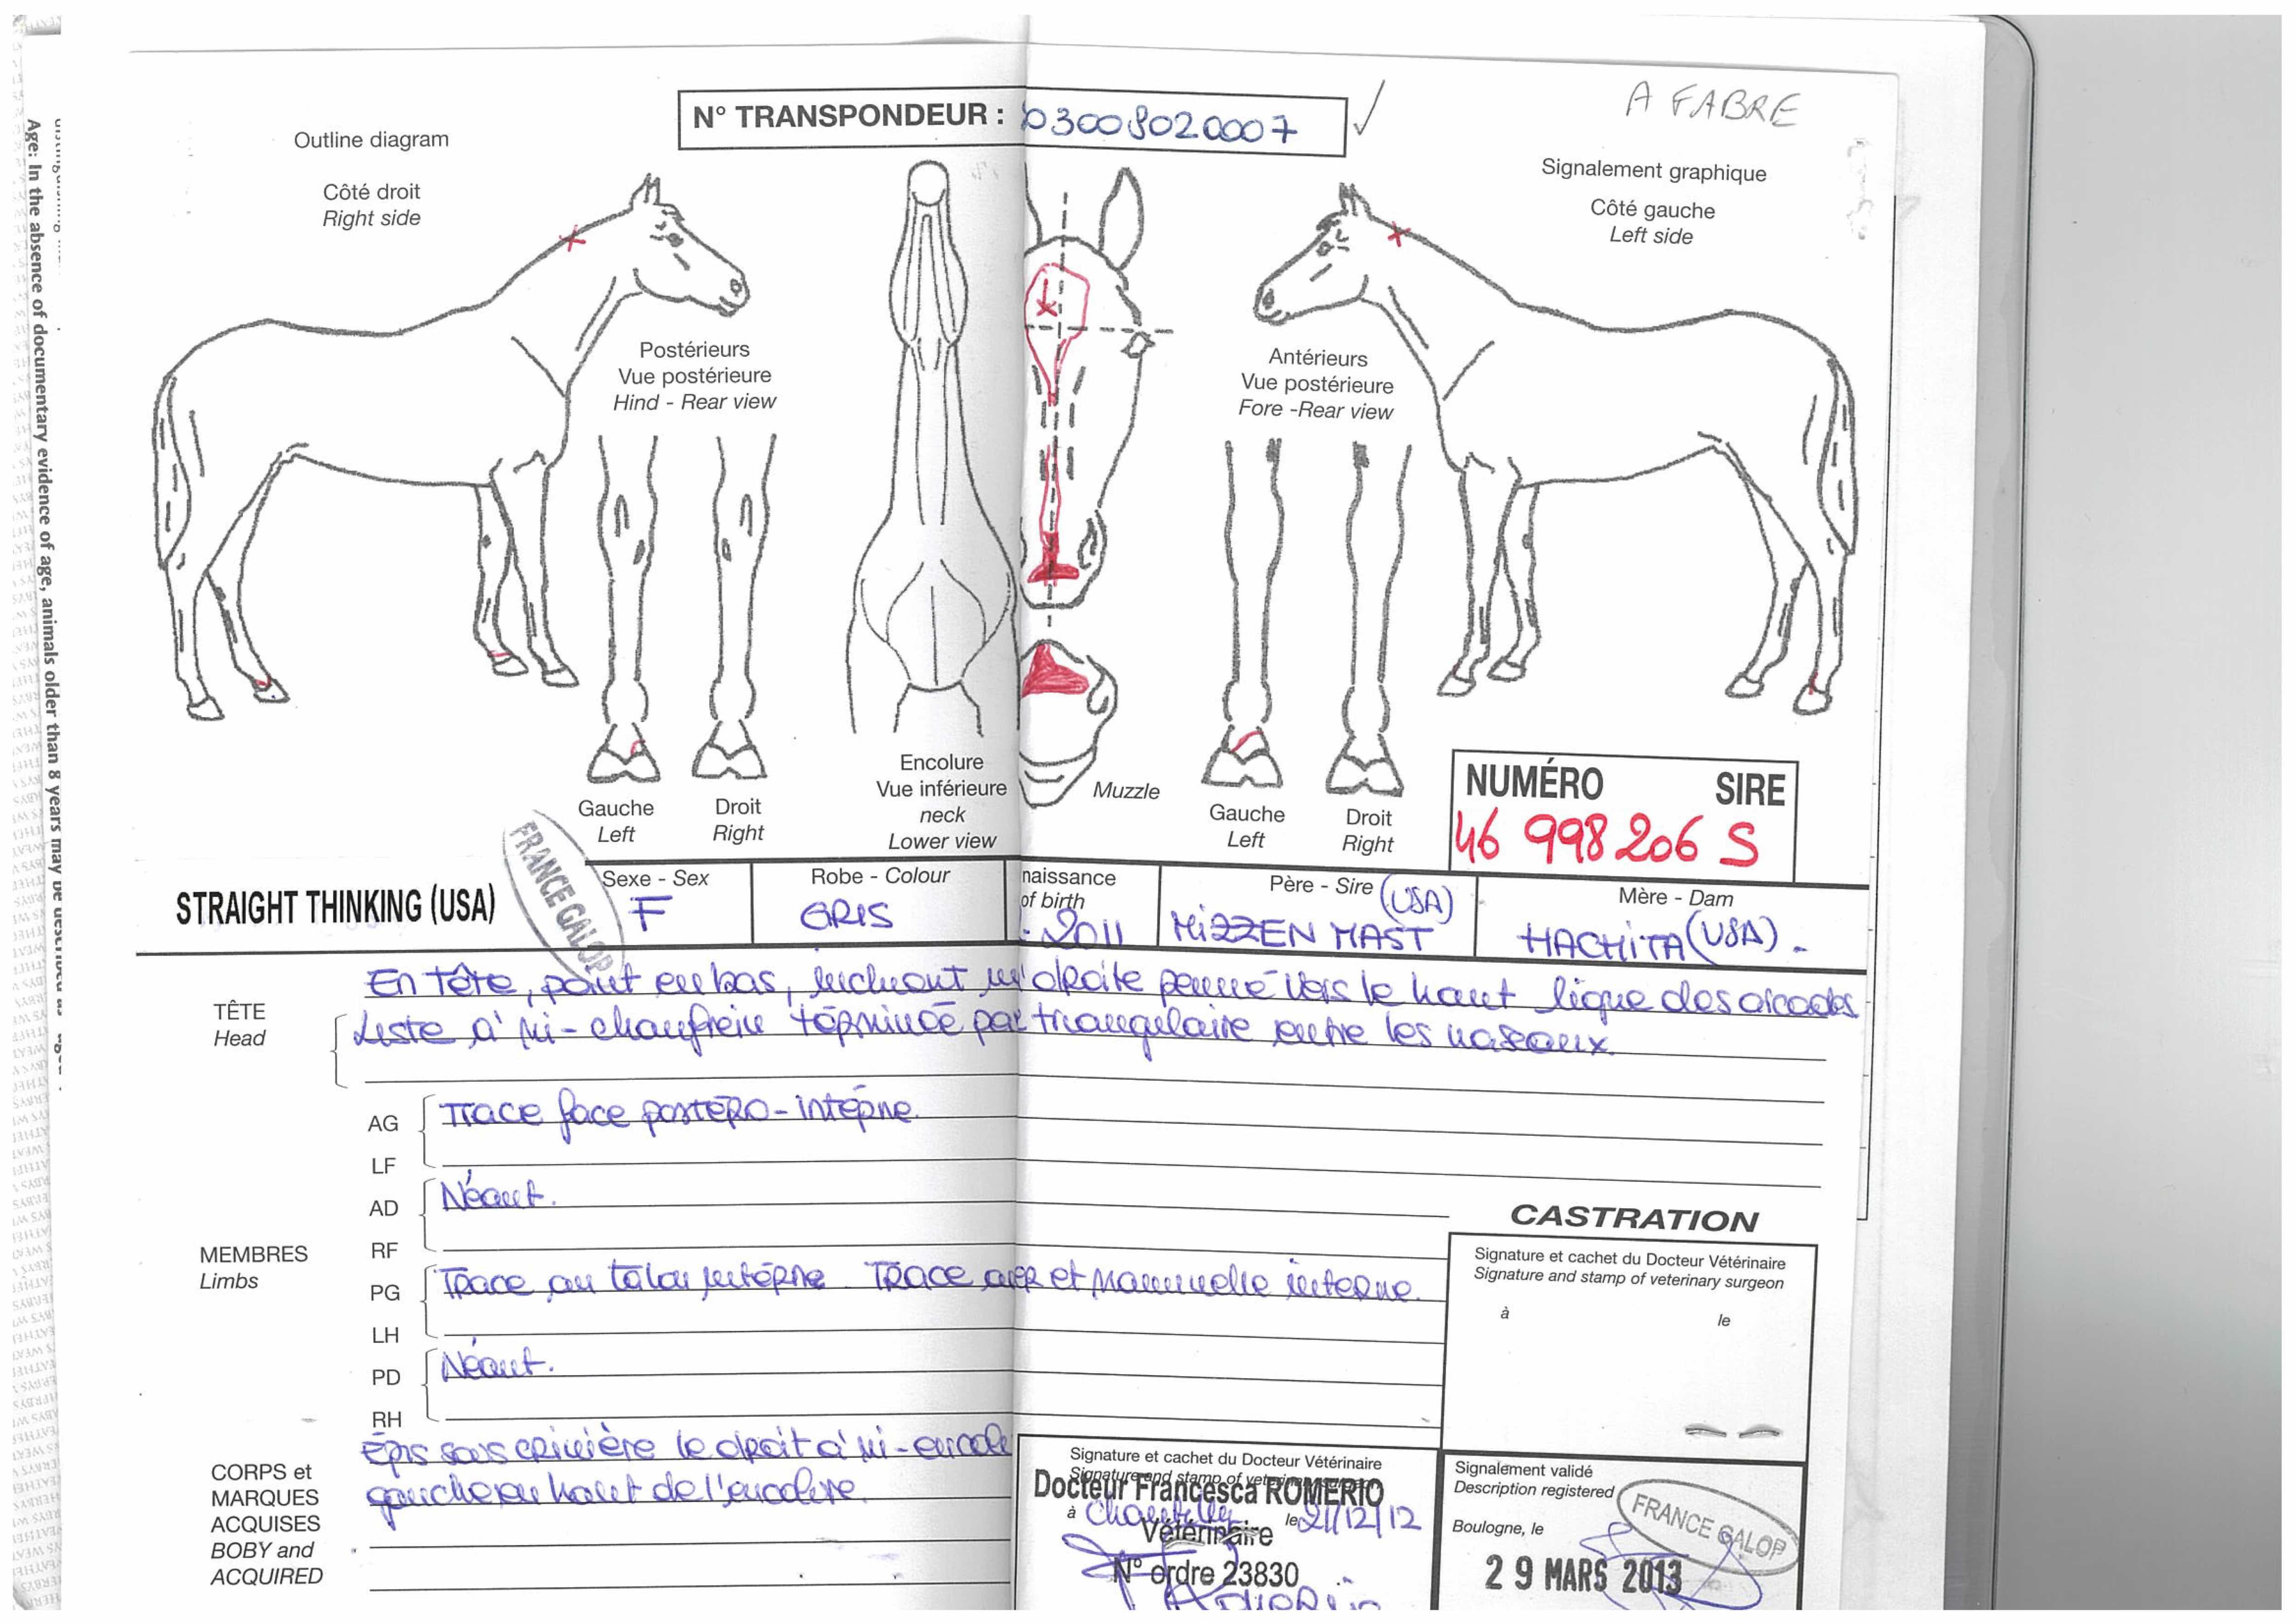 A FABRE
N° TRANSPONDEUR : 03008020007
Outline diagram
Côté droit
Right side
Signalement graphique
Côté gauche
Left side
Postérieurs
Vue postérieure
Hind - Rear view
Antérieurs
Vue postérieure
Fore -Rear view
Encolure
Vue inférieure
neck
Lower view
Muzzle
Gauche
Left
Droit
Right
Gauche
Left
Droit
Right
NUMÉRO SIRE
46 998 206 S
FRANCE GALOP
STRAIGHT THINKING (USA)
Sexe - Sex
F
Robe - Colour
GRIS
naissance
of birth
2011
Père - Sire (USA)
MIZZEN MAST
Mère - Dam
HACHITA (USA) -
TÊTE
Head
En Tête, point en bas, incluant droite penné vers le haut ligne des arcades
Liste à mi-chanfrein terminée par triangulaire entre les naseaux.
MEMBRES
Limbs
AG
LF
Trace face postéro-interne.
AD
RF
Néant.
PG
LH
Trace au talon interne Trace et Mammelle interne.
PD
RH
Néant.
CORPS et
MARQUES
ACQUISES
BOBY and
ACQUIRED
Épis sous crinière le droit à mi-encol
gauche au haut de l'encolure.
CASTRATION
Signature et cachet du Docteur Vétérinaire
Signature and stamp of veterinary surgeon
à le
Signature et cachet du Docteur Vétérinaire
Signature and stamp of
Docteur Francesca ROMERIO
à Chantilly le 21/12/12
Vétérinaire
N° ordre 23830
Signalement validé
Description registered
FRANCE GALOP
Boulogne, le
29 MARS 2013
Age: In the absence of documentary evidence of age, animals older than 8 years may be described as